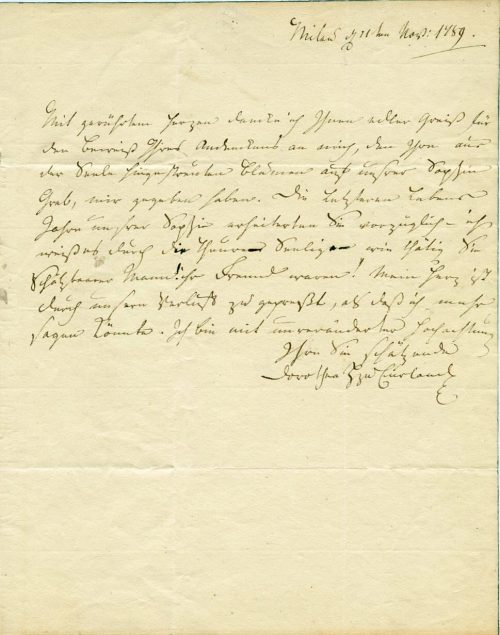 Mitau d 11ten Nov: 1789.
Mit gerührtem Herzen danke ich Ihnen edler Greiß für
den Beweiß Ihres Andenkens an mich, den Ihre aus
der Seele hingestreuten Blumen auf unsrer Sophien
Grab, mir gegeben haben. Die letzteren Lebens
Jahre unsrer Sophie erheiterten Sie vorzüglich – ich
weiß es durch die theure Seelige – wie thätig Sie
Schätzbarer Mann! ihr Freund waren! Mein Herz ist
durch unsern Verlust zu gepreßt, als daß ich mehr
sagen könnte. Ich bin mit unveränderter Hochachtung
Ihre Sie schätzende
Dorothea zu Curland